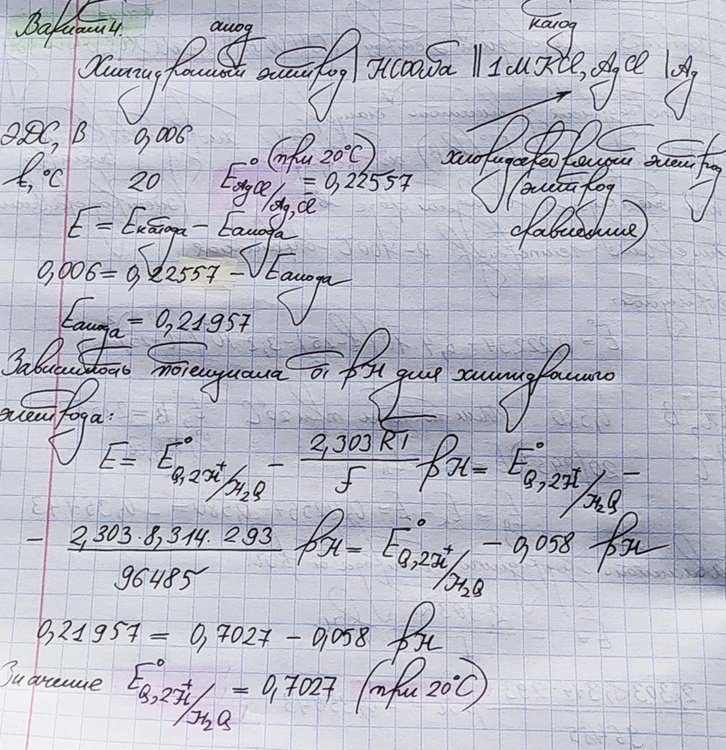 Вариант 4. анод катод
Хингидронный электрод | НСООба || 1М KCl, AgCl | Ag
ЭДС, В 0,006
t, °C 20 E°AgCl/Ag,Cl (при 20°C) = 0,22557
хлоридсеребряный электрод
(электрод
сравнения)
E = Eкатода – Eанода
0,006 = 0,22557 – Eанода
Eанода = 0,21957
Зависимость потенциала от pH для хингидронного
электрода:
E = E°Q,2H⁺/H₂Q – 2,303 RT/F pH = E°Q,2H⁺/H₂Q –
– 2,303·8,314·293/96485 pH = E°Q,2H⁺/H₂Q – 0,058 pH
0,21957 = 0,7027 – 0,058 pH
Значение E°Q,2H⁺/H₂Q = 0,7027 (при 20°C)